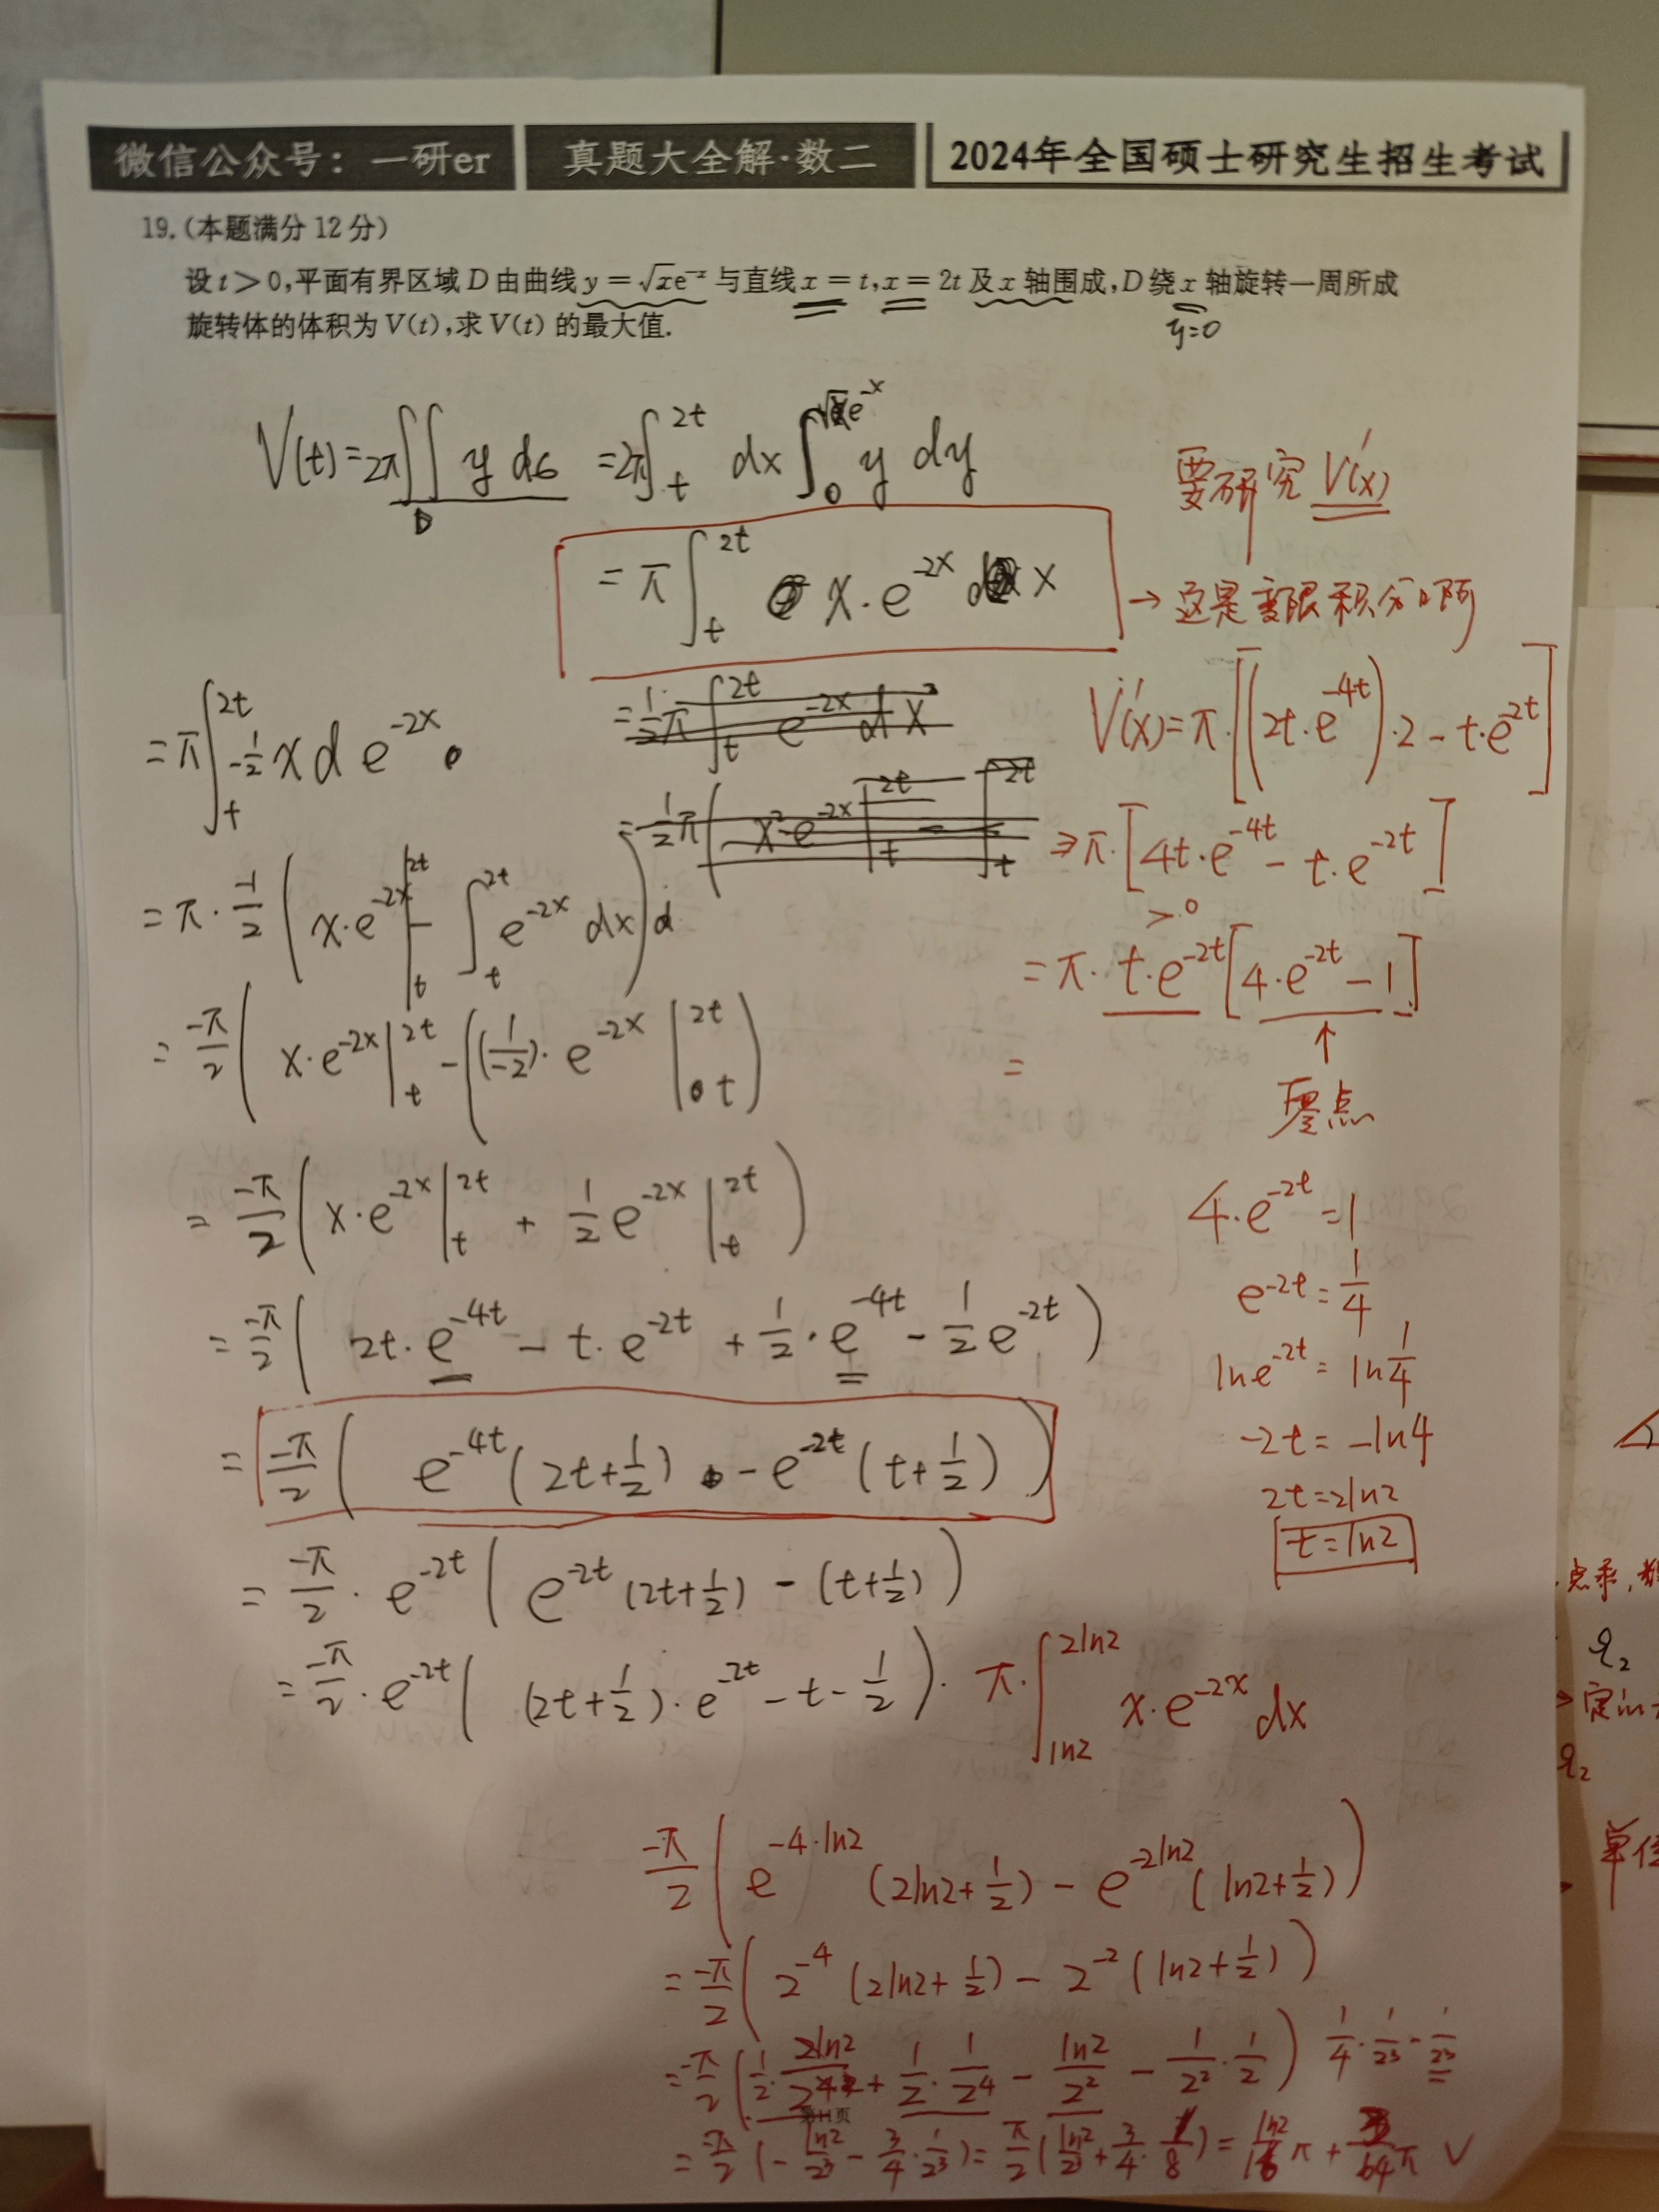 微信公众号：一研er 真题大全解·数二 2024年全国硕士研究生招生考试
19.(本题满分12分)
设t>0,平面有界区域D由曲线y=√xe⁻ˣ与直线x=t,x=2t及x轴围成,D绕x轴旋转一周所成
旋转体的体积为V(t),求V(t)的最大值.
y=0
V(t)=2π∬_D y dσ =2π∫_t^{2t} dx ∫_0^{√x e^{-x}} y dy
要研究 V'(x)
= π∫_t^{2t} x·e^{-2x} dx
→ 这是变限积分啊
=½π∫_t^{2t} e^{-2x} dx²
V'(x)=π·[(2t·e^{-4t})·2-t·e^{-2t}]
=π∫_t^{2t} -½ x d e^{-2x}
=½π( x²e^{-2x}|_t^{2t} - ∫_t^{2t}
⇒π·[4t·e^{-4t}-t·e^{-2t}]
=π·-1/2(x·e^{-2x}|_t^{2t} - ∫_t^{2t} e^{-2x} dx)
>0
=π·t·e^{-2t}[4·e^{-2t}-1]
=-π/2(x·e^{-2x}|_t^{2t} -((1/-2)·e^{-2x}|_t^{2t})
=
↑
零点
=-π/2(x·e^{-2x}|_t^{2t} + ½e^{-2x}|_t^{2t})
4·e^{-2t}=1
e^{-2t}=1/4
=-π/2(2t·e^{-4t}-t·e^{-2t}+½·e^{-4t}-½e^{-2t})
lne^{-2t}=ln1/4
-2t=-ln4
=-π/2(e^{-4t}(2t+½)-e^{-2t}(t+½))
2t=2ln2
t=ln2
=-π/2·e^{-2t}(e^{-2t}(2t+½)-(t+½))
=-π/2·e^{-2t}((2t+½)·e^{-2t}-t-½)·
π·∫_{ln2}^{2ln2} x·e^{-2x} dx
-π/2(e^{-4·ln2}(2ln2+½)-e^{-2ln2}(ln2+½))
=-π/2(2^{-4}(2ln2+½)-2^{-2}(ln2+½))
=-π/2(½·2ln2/2⁴+½·1/2⁴-ln2/2²-1/2²·½) 1/4·1/2³-1/2³
第11页
=-π/2(-ln2/2³-3/4·1/2³)=π/2(ln2/2³+3/4·1/8)=ln2/16π+3/64π √
点乘,
单位